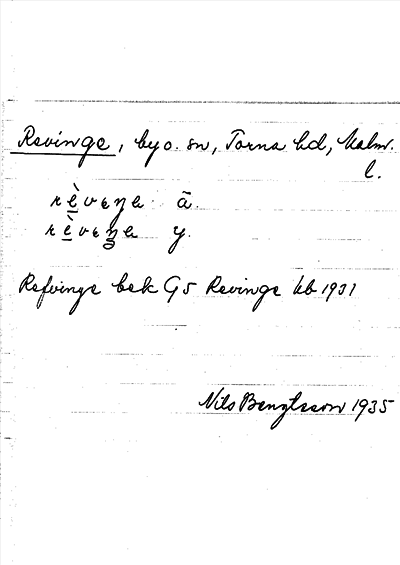 Revinge, by o. sn, Torna hd, Malm.
l.
rè̱veŋe ā.
rè̱veŋe y.
Refvinge bek G5 Revinge kb 1931
Nils Bengtsson 1935